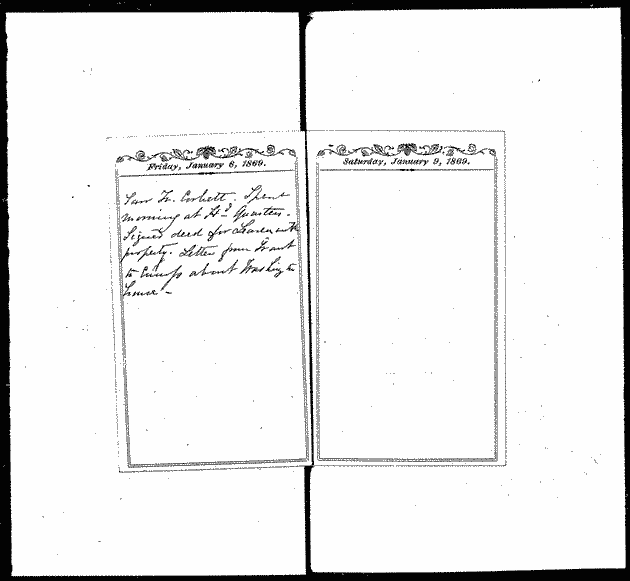 Friday, January 8, 1869.
Saw Ft. Corbett. Spent
morning at Hd Quarters.
Signed deed for Leavenworth
property. Letter from Grant
to about Washington
house –
Saturday, January 9, 1869.